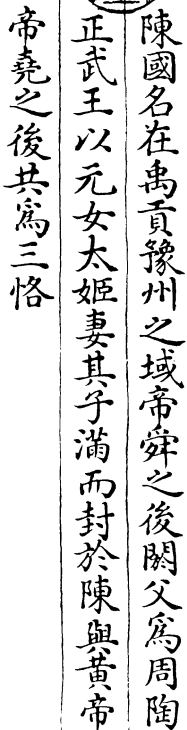 陳國名在禹貢豫州之域帝舜之後閼父爲周陶
正武王以元女太姬妻其子滿而封於陳與黃帝
帝堯之後共爲三恪